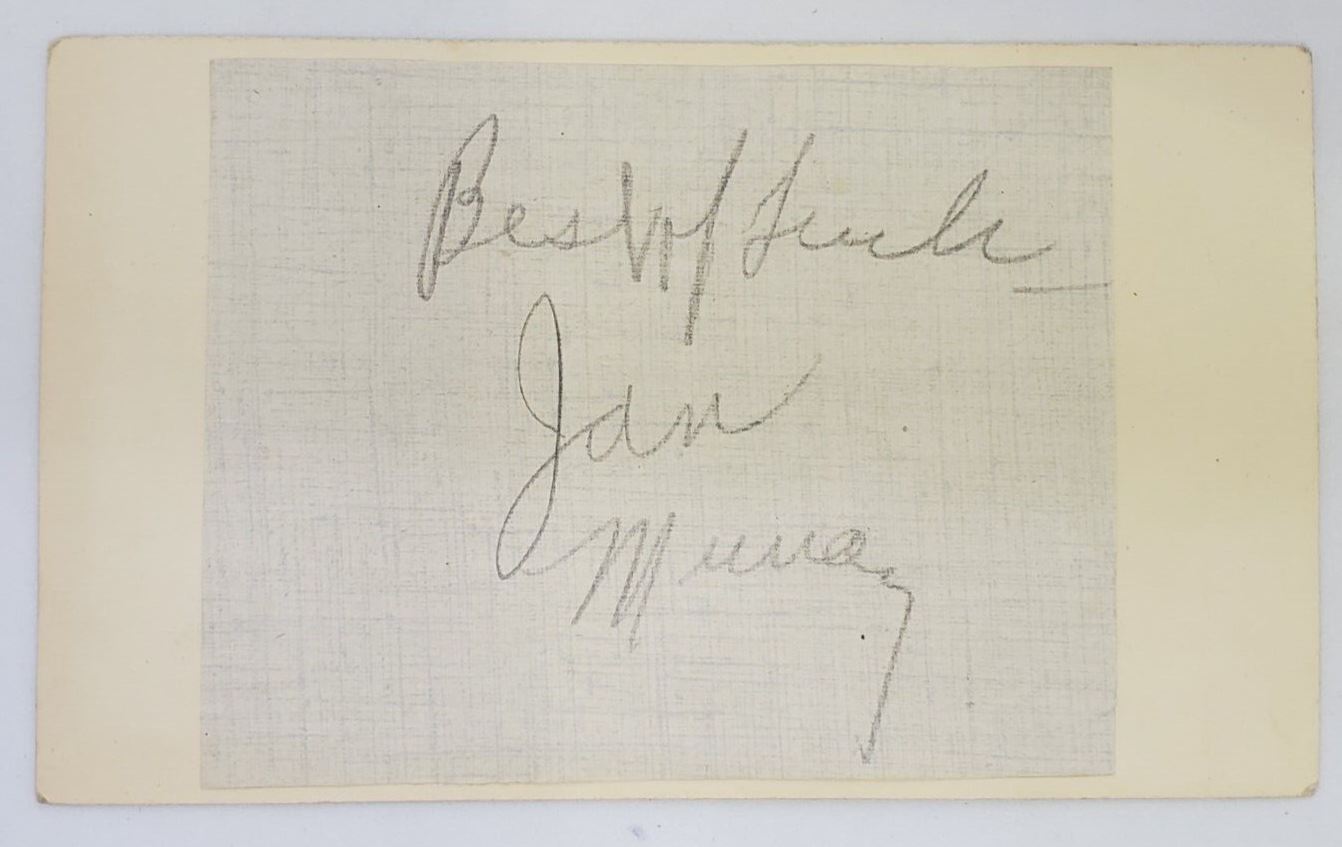 Best of Luck
Jan
Murray